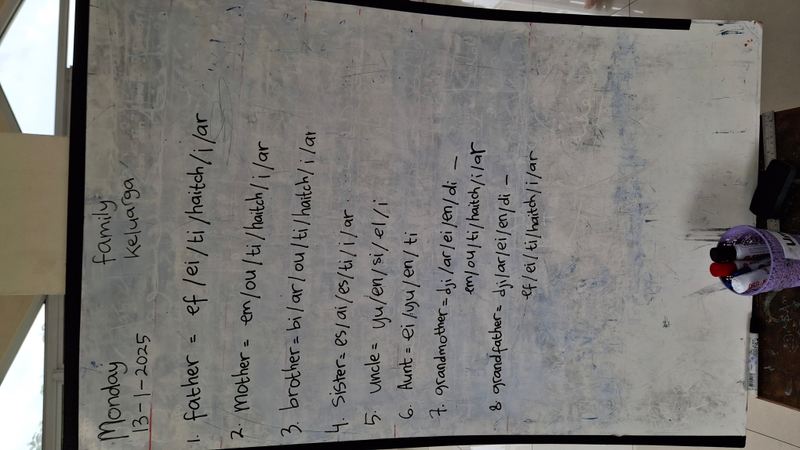 Monday
13-1-2025
family
Keluarga
1. father = ef/ei/ti/haitch/i/ar
2. Mother = em/ou/ti/haitch/i/ar
3. brother = bi/ar/ou/ti/haitch/i/ar
4. Sister = es/ai/es/ti/i/ar
5. Uncle = yu/en/si/el/i
6. Aunt = ei/yu/en/ti
7. grandmother = dji/ar/ei/en/di -
em/ou/ti/haitch/i/ar
8 grandfather = dj/ar/ei/en/di -
ef/ei/ti/haitch/i/ar